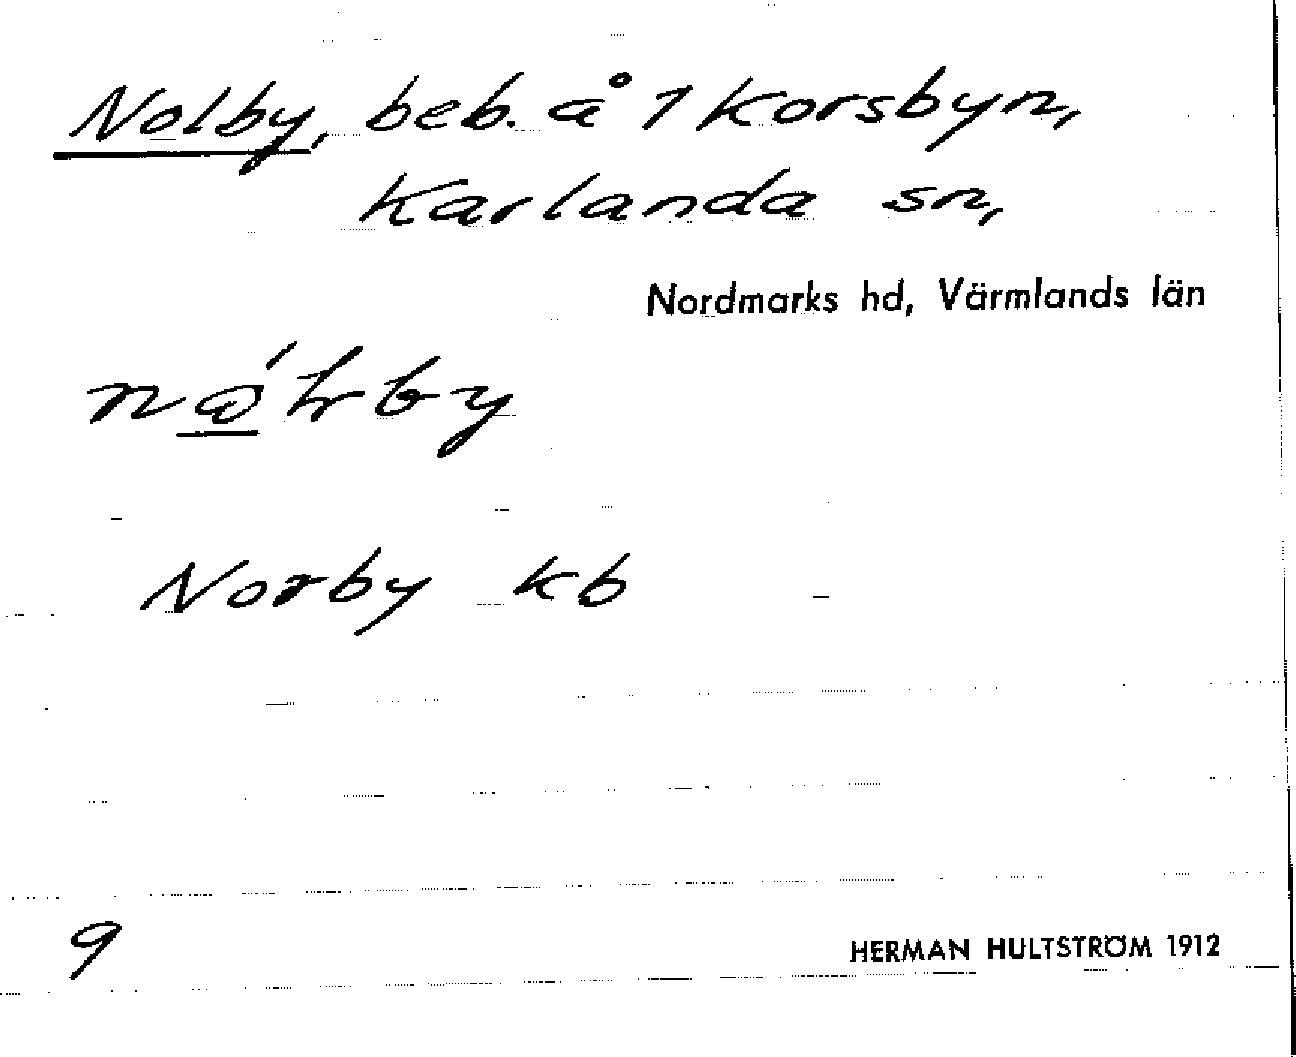 Nolby, beb. å 1 Korsbyn,
Karlanda sn,
Nordmarks hd, Värmlands län
Norby kb
9
HERMAN HULTSTRÖM 1912